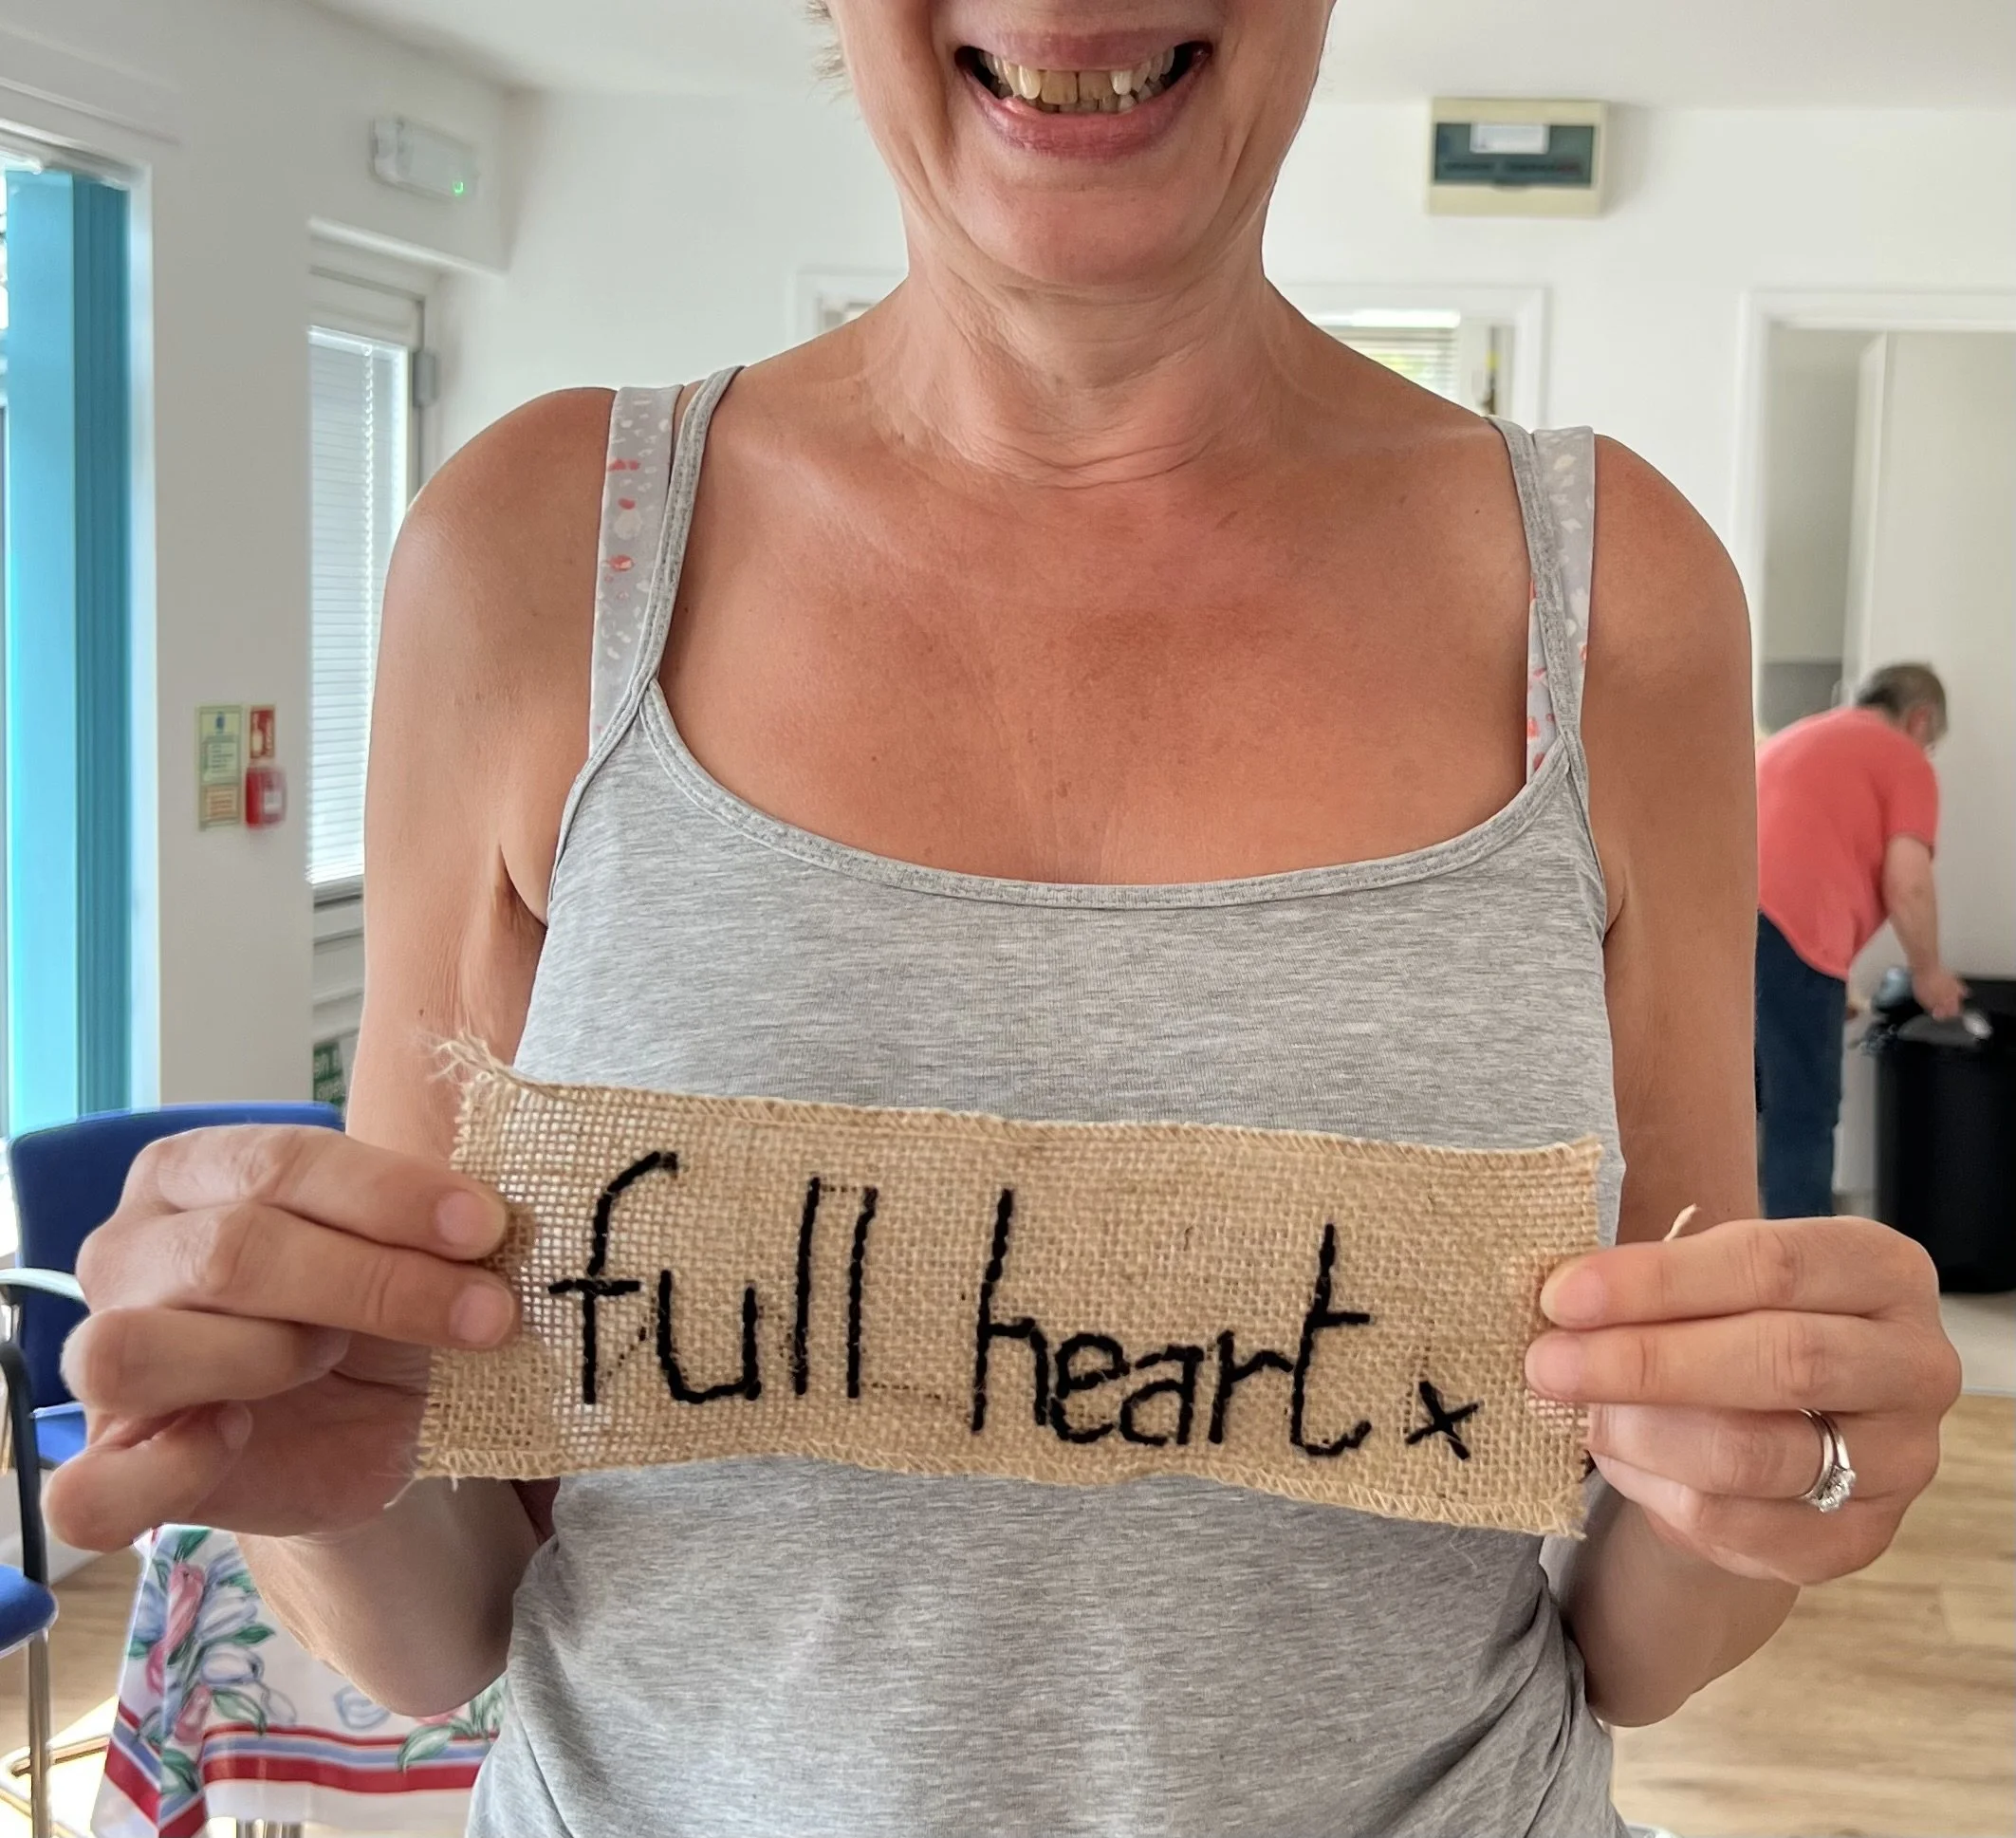 full heart x